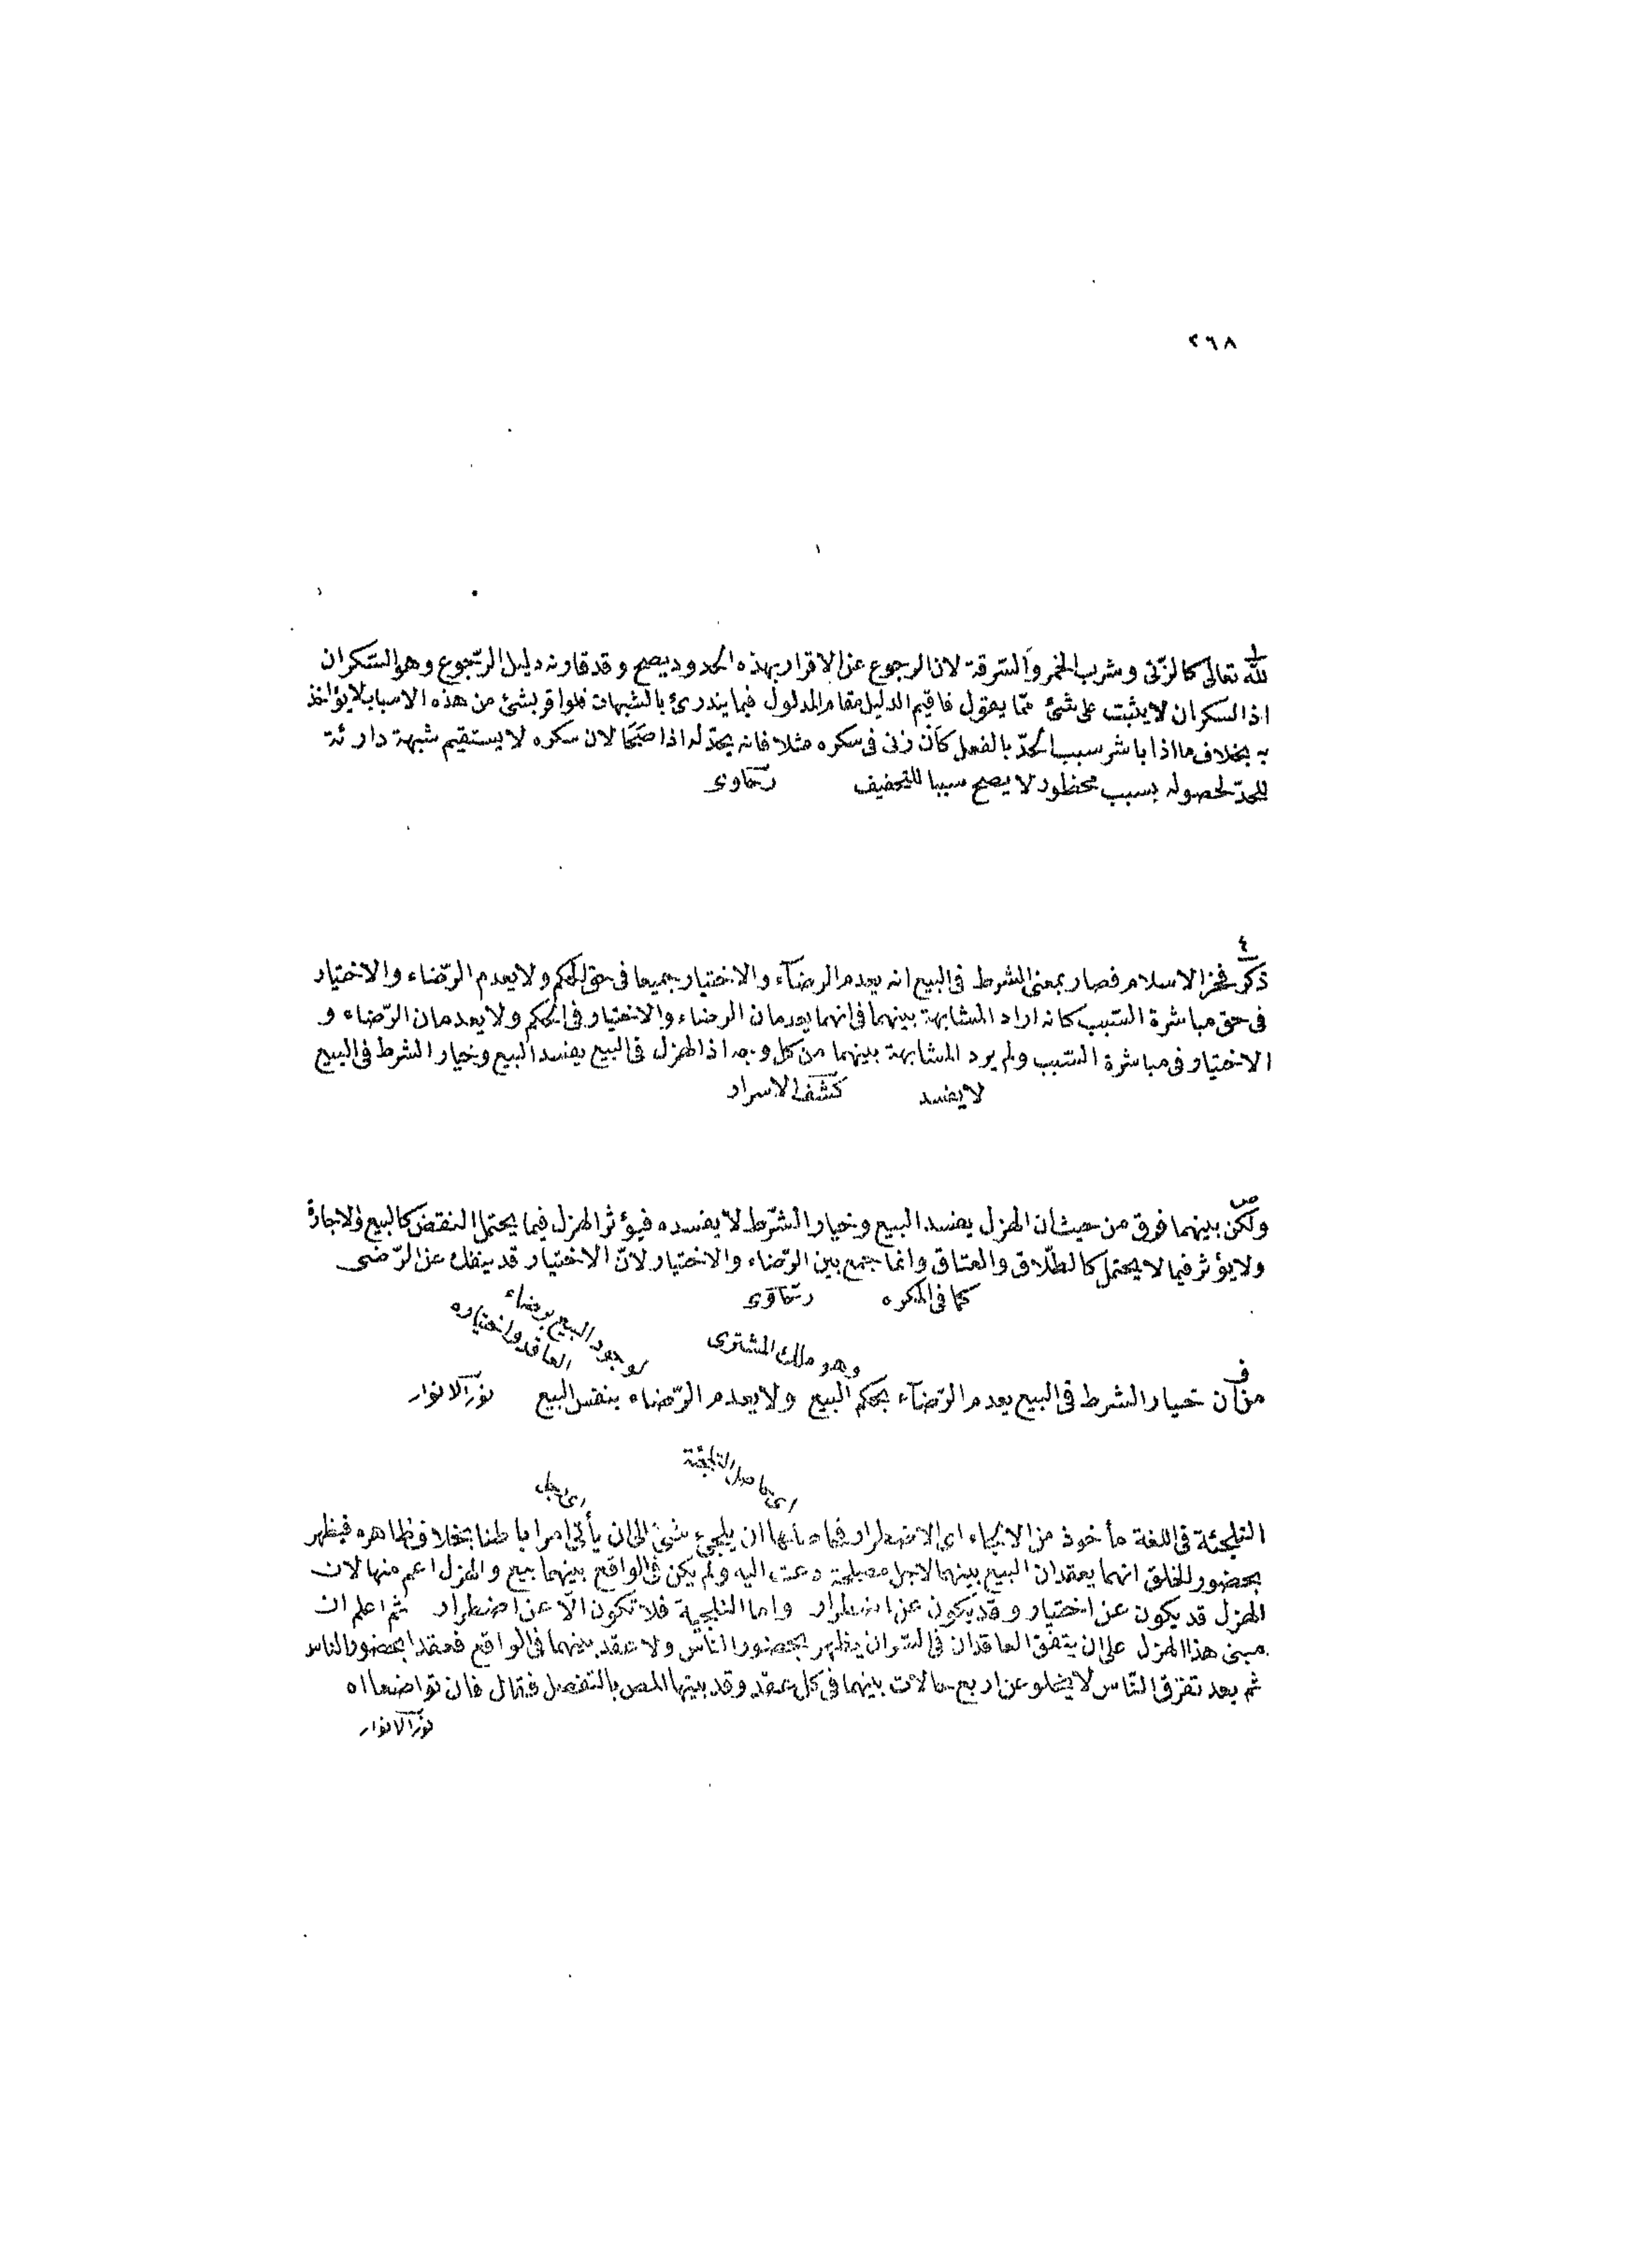 ٢٦٨
ط
لله تعالى كالزنى وشرب الخمر والسرقة لان الرجوع عن الاقرار بهذه الحدود يصح وقد قارنه دليل الرجوع وهو السكران
اذ السكران لا يثبت على شئ مما يقول فاقيم الدليل مقام المدلول فيما يندرئ بالشبهات فلو اقر بشئ من هذه الاسباب لا يؤاخذ
به بخلاف ما اذا باشر سبب الحد بالفعل كأن زنى فى سكره مثلا فانه يحد له اذا صحا لان سكره لا يستقيم شبهة دارئة
للحد لحصوله بسبب محظور لا يصح سببا للتخفيف رهاوى
٤
ذكر فخر الاسلام فصار بمعنى الشرط فى البيع انه يعدم الرضآء والاختيار جميعا فى حق الحكم ولا يعدم الرّضاء والاختيار
فى حق مباشرة السّبب كانه اراد المشابهة بينهما فانهما يعدمان الرضاء والاختيار فى الحكم ولا يعدمان الرّضاء و
الاختيار فى مباشرة السّبب ولم يرد المشابهة بينهما من كل وجه اذ الهزل فى البيع يفسد البيع وخيار الشرط فى البيع
لا يفسد كشف الاسرار
ص
ولكن بينهما فرق من حيث ان الهزل يفسد البيع وخيار الشّرط لا يفسده فيؤثر الهزل فيما يحتمل النقض كالبيع والاجارة
ولا يؤثر فيما لا يحتمل كالطّلاق والعتاق وانما جمع بين الرّضاء والاختيار لانّ الاختيار قد ينفك عن الرّضى
كما فى المكره رهاوى
لوجود البيع برضاء
العاقد واختياره
وهو ملك المشترى
ف
من ان خيار الشرط فى البيع يعدم الرّضآء بحكم البيع ولا يعدم الرّضاء بنفس البيع نور الانوار
اى حاصل التلجئة
اى رجل
التلجئة فى اللغة مأخوذ من الالجاء اى الاضطرار فحاصلها ان يلجئ شئ الى ان يأتى امرا باطنا بخلاف ظاهره فيظهر
بحضور الخلق انهما يعقدان البيع بينهما لاجل مصلحة دعت اليه ولم يكن فى الواقع بينهما بيع والهزل اعم منها لان
الهزل قد يكون عن اختيار وقد يكون عن اضطرار واما التلجية فلا تكون الّا عن اضطرار ثم اعلم ان
مبنى هذا الهزل على ان يتفق العاقدان فى السّر ان يظهر بحضور الناس ولا عقد بينهما فى الواقع فعقدا بحضور الناس
ثم بعد تفرق النّاس لا يخلو عن اربع حالات بينهما فى كل عقد وقد بينها المص بالتفصيل فقال فان تواضعا اه
نور الانوار